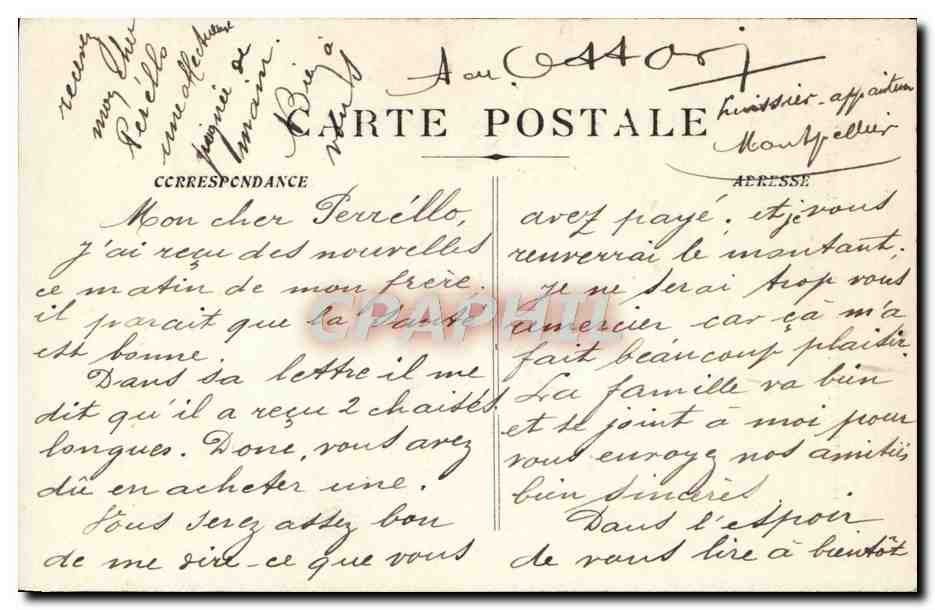 CARTE POSTALE
CORRESPONDANCE
Mon cher Perréllo,
J'ai reçu des nouvelles
ce matin de mon frère.
il parait que la santé
est bonne.
Dans sa lettre il me
dit qu'il a reçu 2 chaises
longues. Donc, vous avez
dû en acheter une.
Vous serez assez bon
de me dire ce que vous
ADRESSE
avez payé. et je vous
renverrai le montant.
Je ne serai trop vous
remercier car çà m'a
fait beaucoup plaisir.
La famille va bien
et se joint à moi pour
vous envoyez nos amitiés
bien sincères.
Dans l'espoir
de vous lire à bientôt
recevez
mon cher
Peréllo
une affectueuse
poignée de
main.
Bien à
vous
huissier-appariteur
Montpellier
CPAPHIL